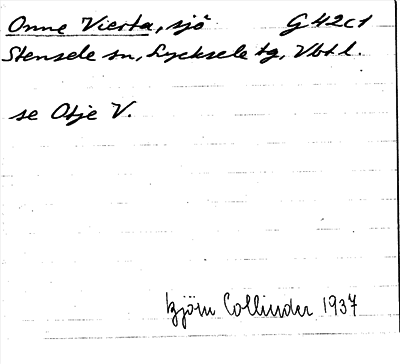 Onne Vierta, sjö G42c1
Stensele sn, Lycksele tg, Vbtl.
se Otje V.
Björn Collinder 1937